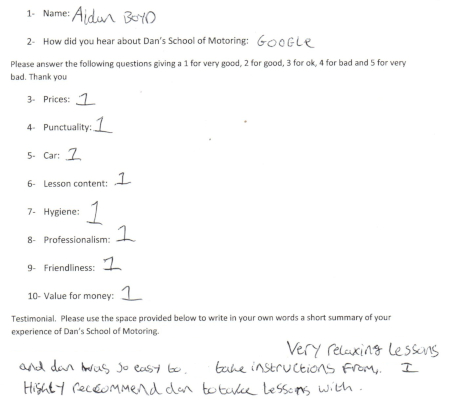 1- Name: Aidan BOYD
2- How did you hear about Dan's School of Motoring: GOOGLE
Please answer the following questions giving a 1 for very good, 2 for good, 3 for ok, 4 for bad and 5 for very
bad. Thank you
3- Prices: 1
4- Punctuality: 1
5- Car: 1
6- Lesson content: 1
7- Hygiene: 1
8- Professionalism: 1
9- Friendliness: 1
10- Value for money: 1
Testimonial. Please use the space provided below to write in your own words a short summary of your
experience of Dan's School of Motoring.
Very relaxing Lessons
and dan was so easy to. take instructions From, I
HIGHLY reccommend dan to take Lessons with.